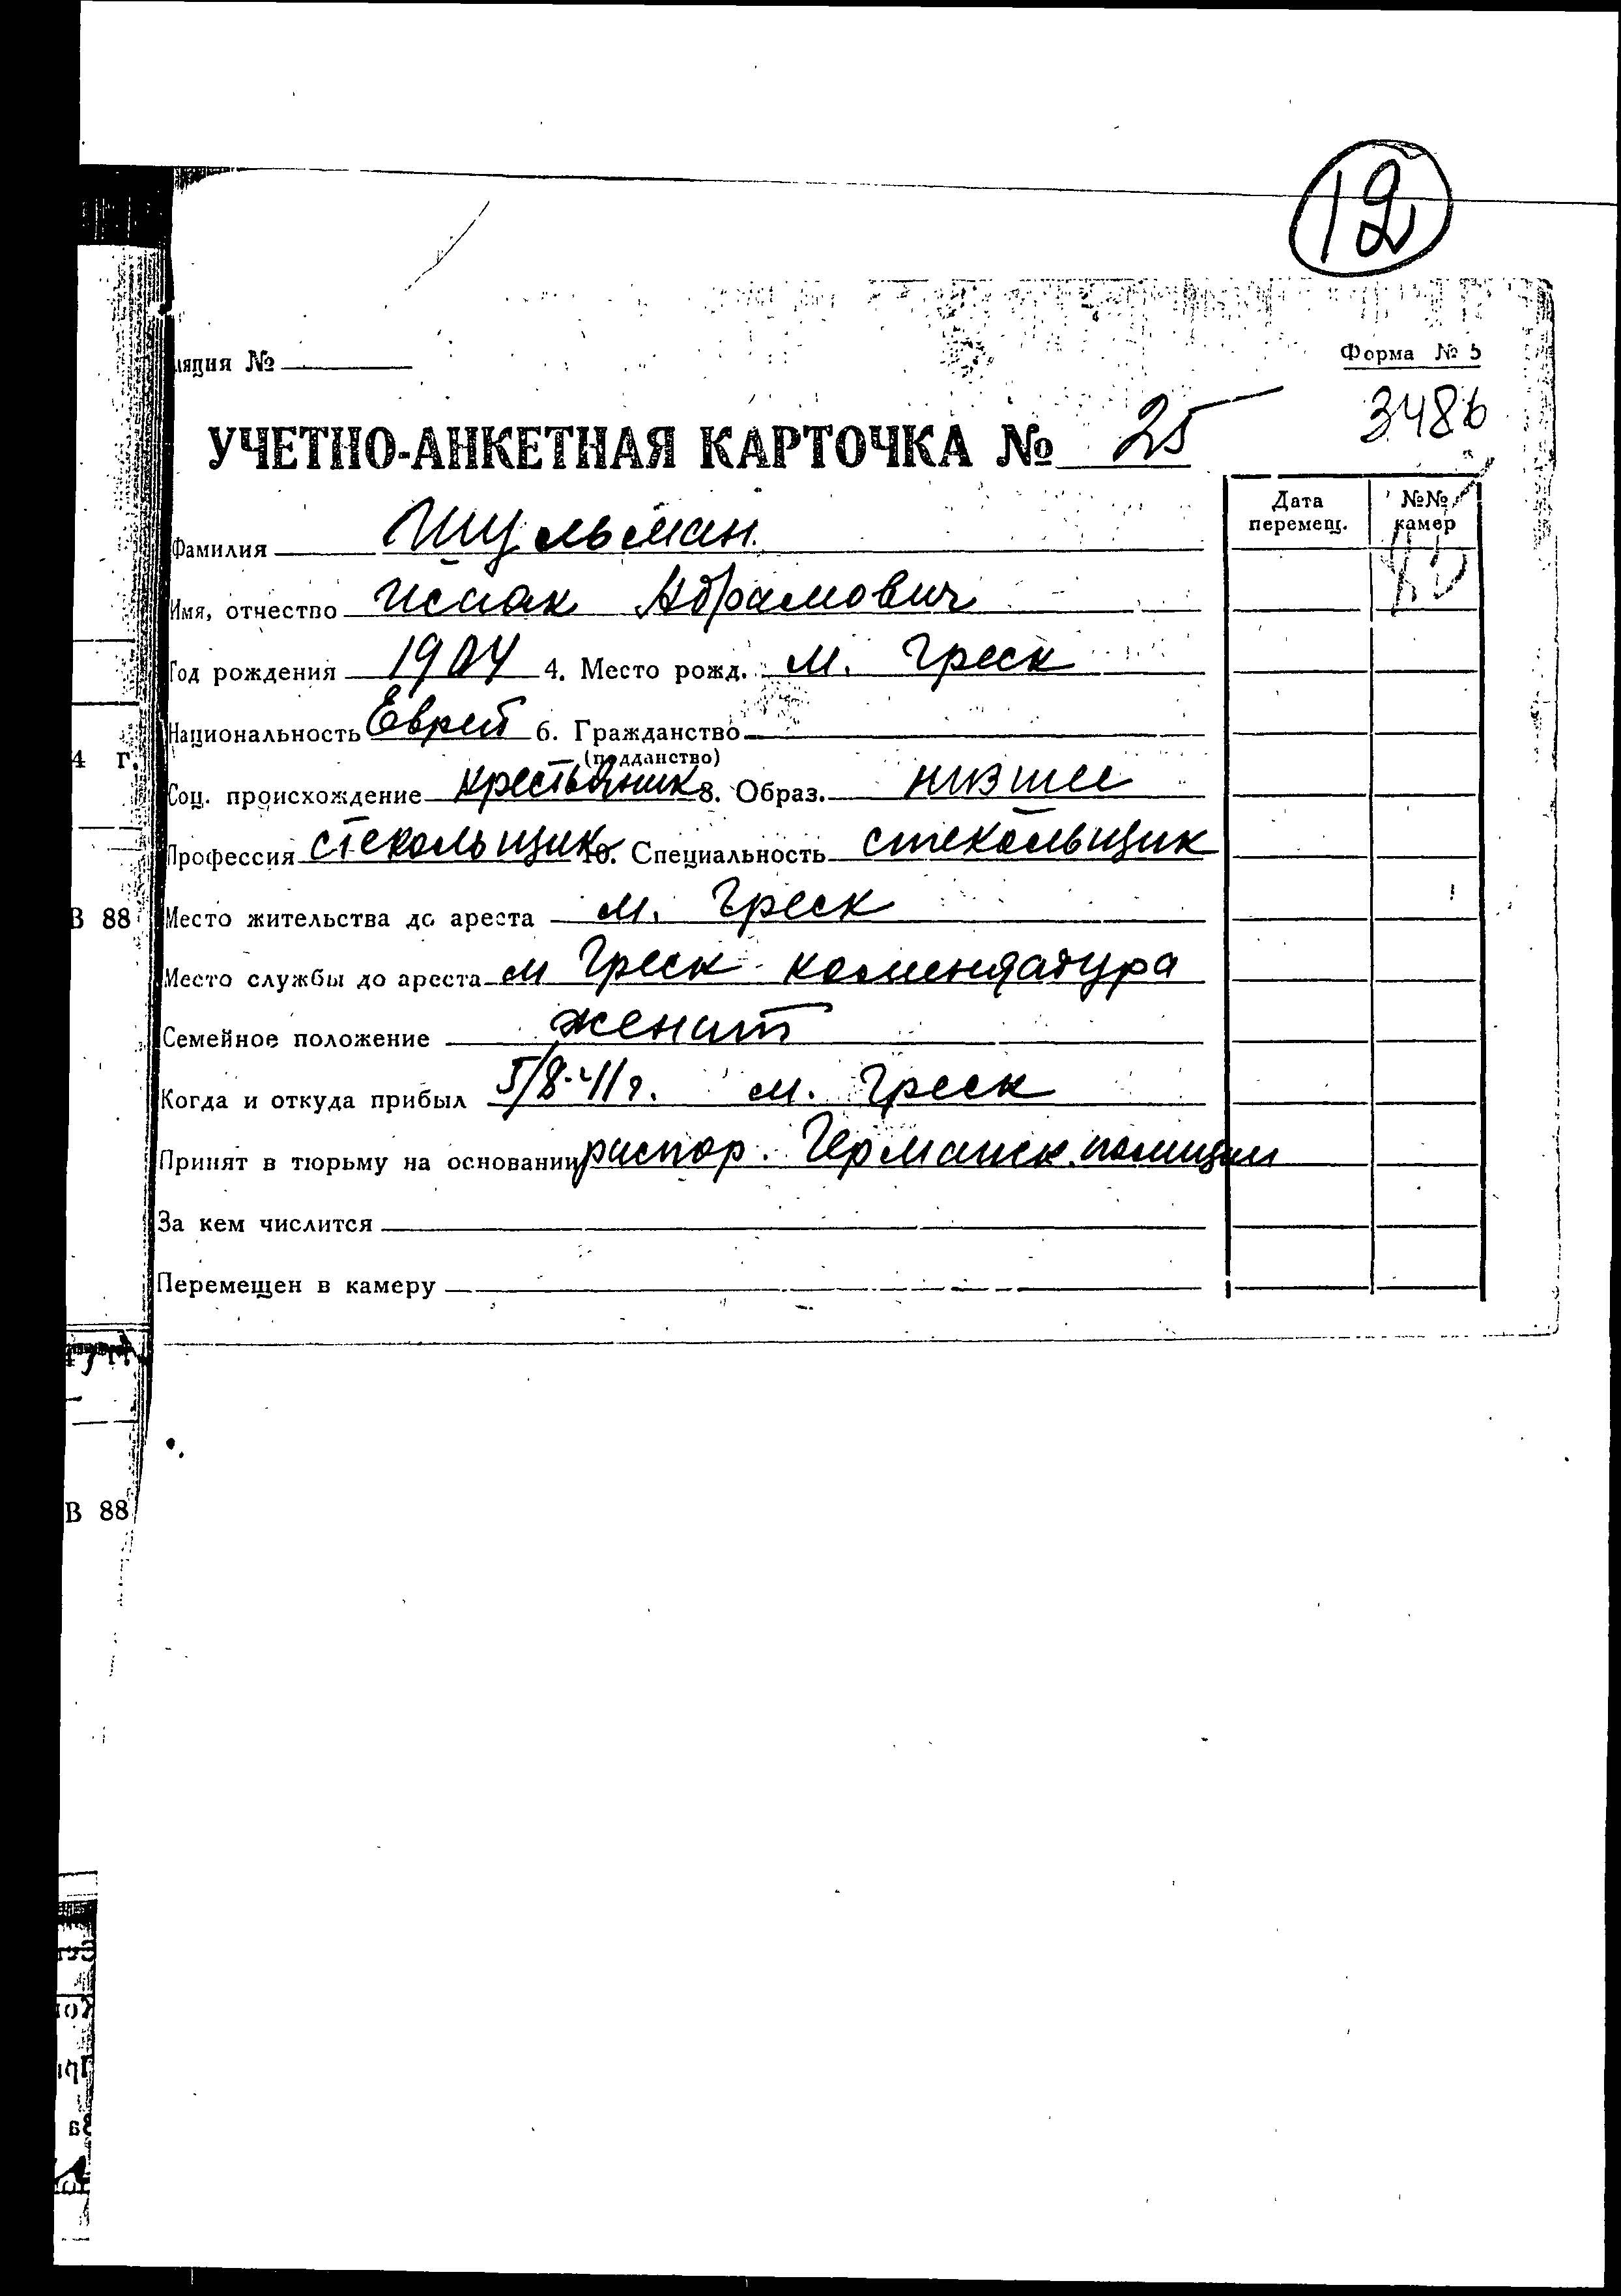 12
ляция №
Форма № 5
3486
УЧЕТНО-АНКЕТНАЯ КАРТОЧКА № 25
Дата перемещ.
№№ камер
Фамилия Шульман
Имя, отчество Исаак Абрамович
Год рождения 1904 4. Место рожд. м. Греск
Национальность Еврей 6. Гражданство
(подданство)
4 г.
Соц. происхождение крестьянник 8. Образ. низшее
Профессия стекольщик 10. Специальность стекольщик
В 88
Место жительства до ареста м. Греск
Место службы до ареста м Греск комендатура
Семейное положение женат
Когда и откуда прибыл 5/8-41г. м. Греск
Принят в тюрьму на основании распор. Германск. полиции
За кем числится
Перемещен в камеру
В 88